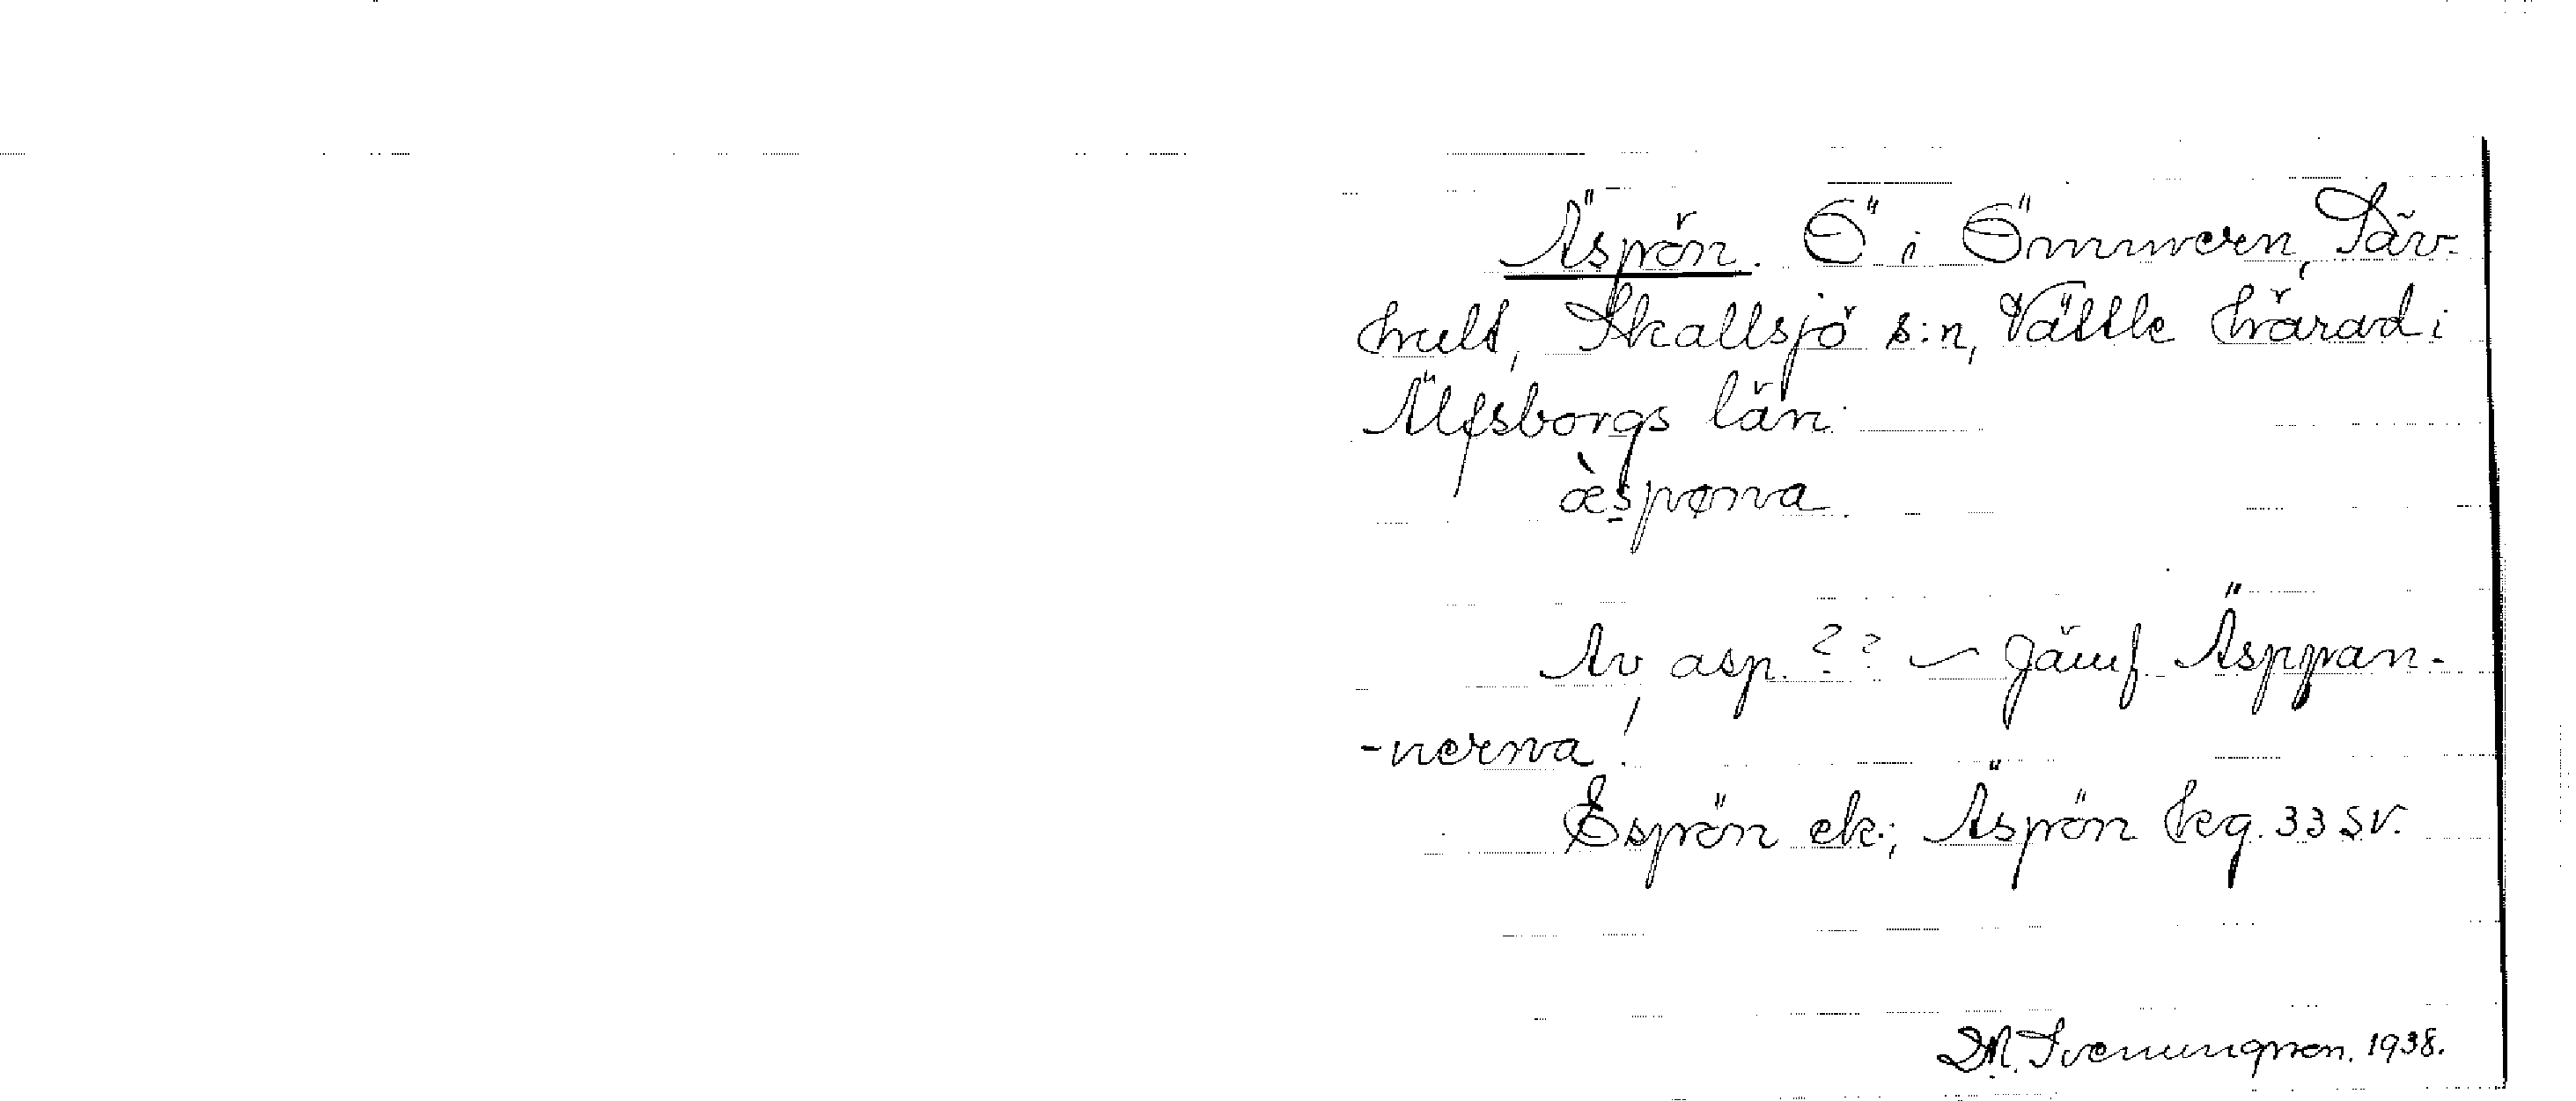 Äsprön. Ö i Ömmern, Säv-
hult, Skallsjö s:n, Vättle härad i
Älfsborgs län.
æ̀sprøna
Av asp. ?? – Jämf. Äsppan-
-nerna!
Esprön ek.; Äsprön hkg. 33 SV.
M. Svenungsson. 1938.